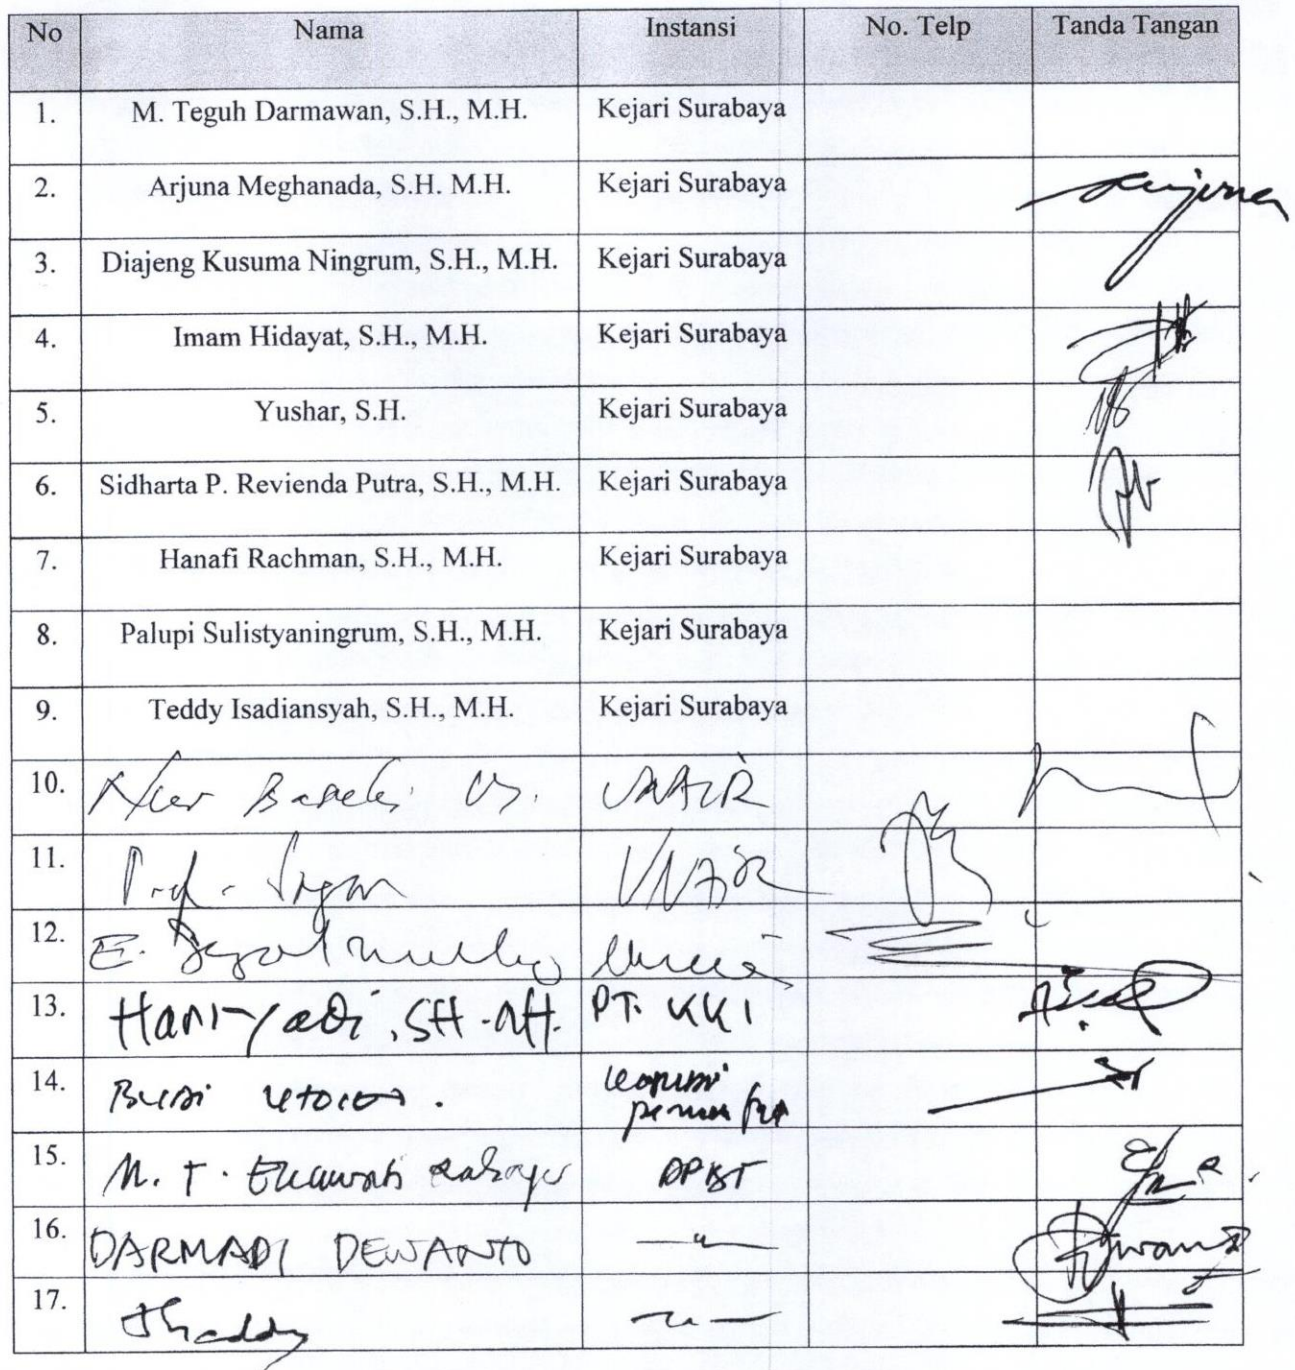 No Nama Instansi No. Telp Tanda Tangan
1. M. Teguh Darmawan, S.H., M.H. Kejari Surabaya
2. Arjuna Meghanada, S.H. M.H. Kejari Surabaya
3. Diajeng Kusuma Ningrum, S.H., M.H. Kejari Surabaya
4. Imam Hidayat, S.H., M.H. Kejari Surabaya
5. Yushar, S.H. Kejari Surabaya
6. Sidharta P. Revienda Putra, S.H., M.H. Kejari Surabaya
7. Hanafi Rachman, S.H., M.H. Kejari Surabaya
8. Palupi Sulistyaningrum, S.H., M.H. Kejari Surabaya
9. Teddy Isadiansyah, S.H., M.H. Kejari Surabaya
10. UNAIR
11. UNAIR
12. E.
13. Hariyadi, SH. MH. PT. KKI
14.
15. M. T. Ekawati Rahayu DPBT
16. DARMADI DEWANTO —〃—
17. Thaddy —〃—